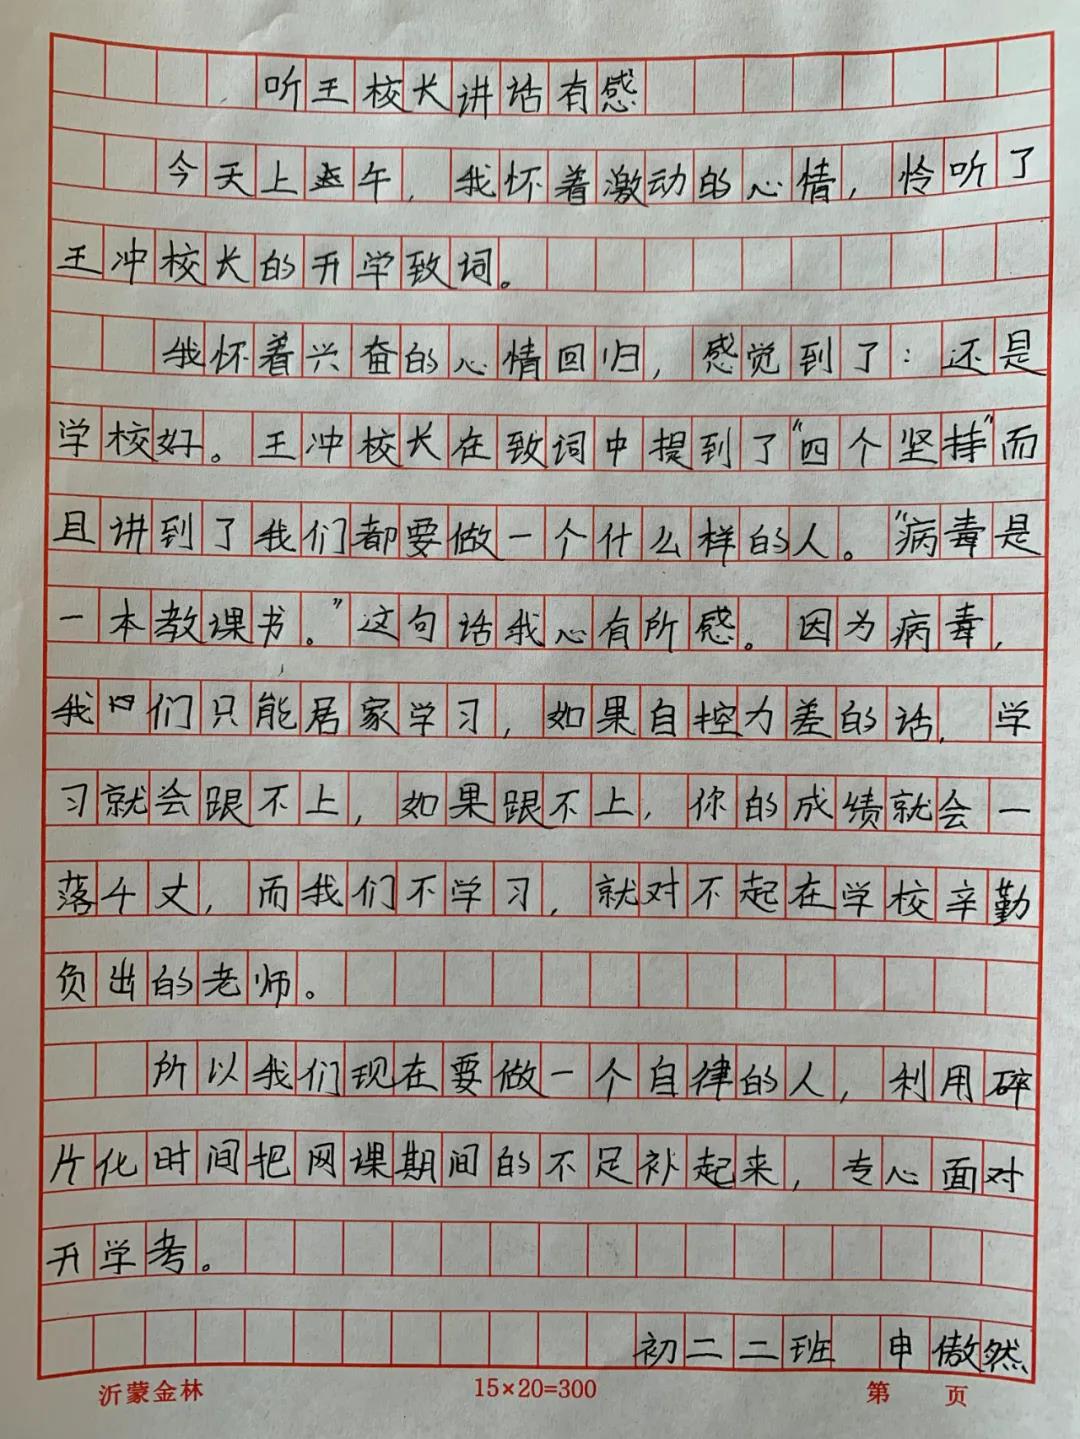 听王校长讲话有感
今天上午，我怀着激动的心情，怜听了
王冲校长的开学致词。
我怀着兴奋的心情回归，感觉到了：还是
学校好。王冲校长在致词中提到了“四个坚持”而
且讲到了我们都要做一个什么样的人。“病毒是
一本教课书。”这句话我心有所感。因为病毒，
我们只能居家学习，如果自控力差的话，学
习就会跟不上，如果跟不上，你的成绩就会一
落千丈，而我们不学习，就对不起在学校辛勤
负出的老师。
所以我们现在要做一个自律的人，利用碎
片化时间把网课期间的不足补起来，专心面对
开学考。
初二二班 申傲然
沂蒙金林 15×20=300 第 页